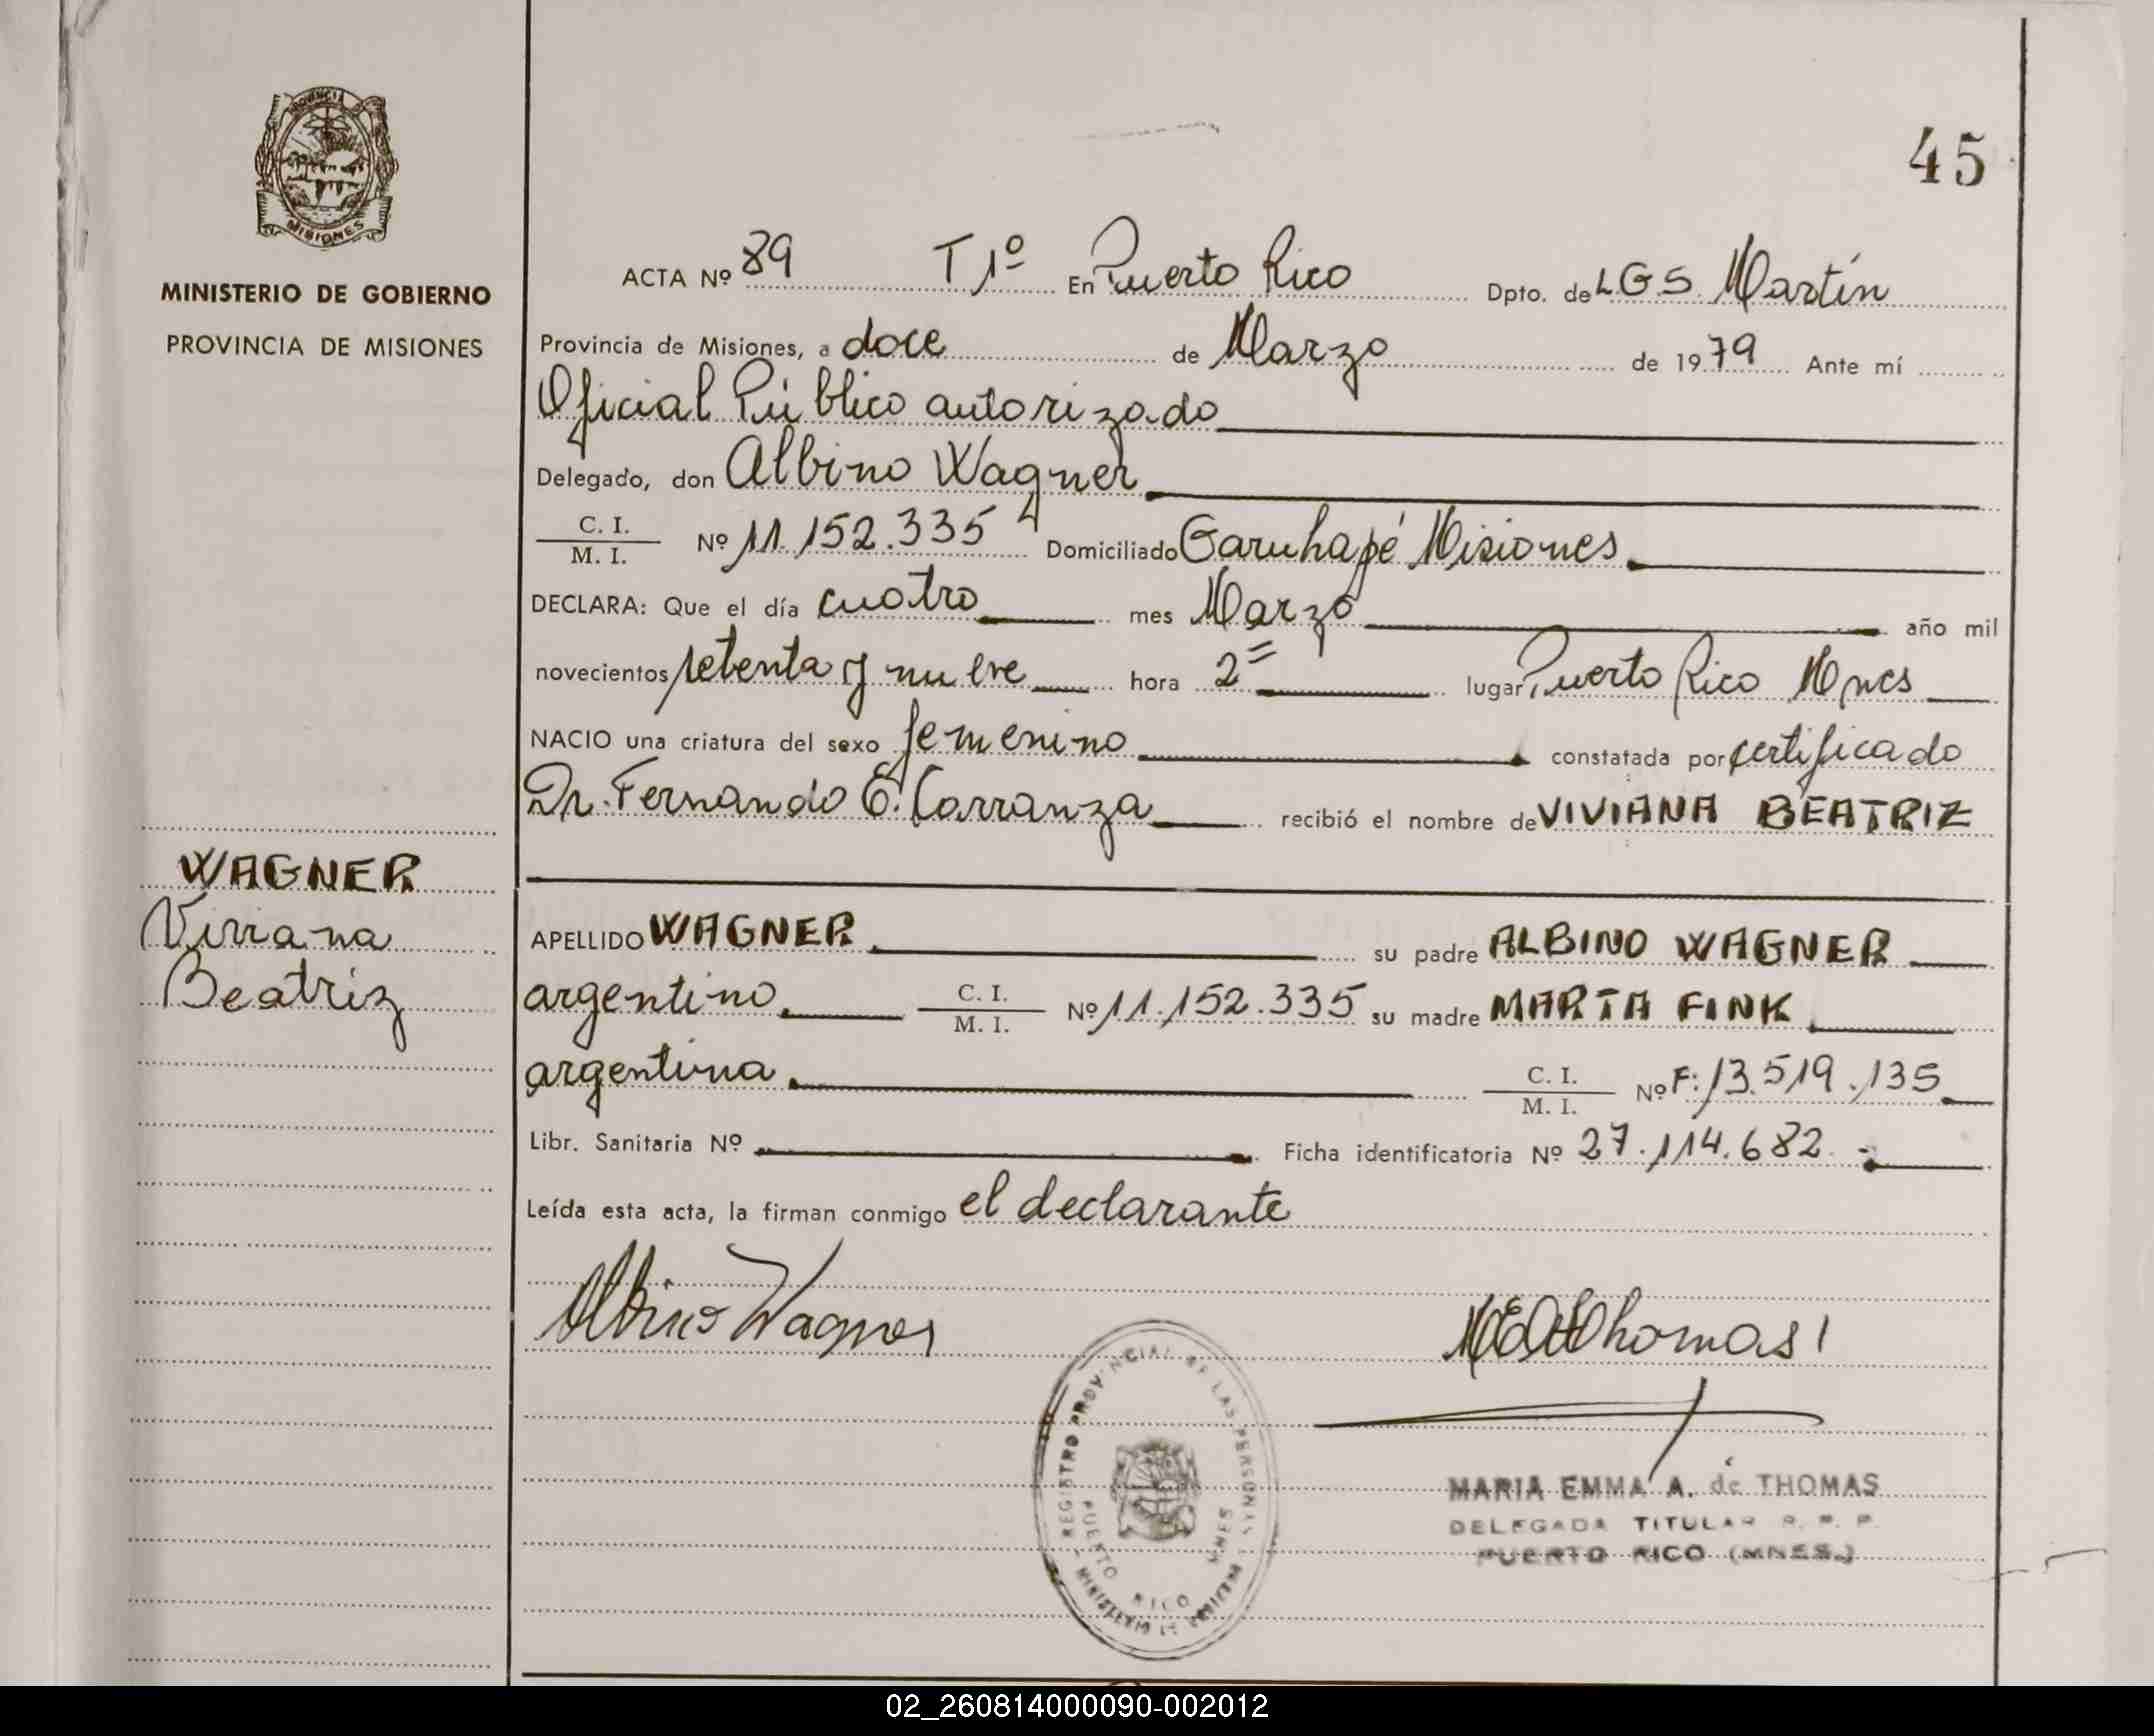 PROVINCIA
MISIONES
MINISTERIO DE GOBIERNO
PROVINCIA DE MISIONES
WAGNER
Viviana
Beatriz
45
ACTA Nº 89 T 1º En Puerto Rico Dpto. de L G S. Martín
Provincia de Misiones, a doce de Marzo de 1979 Ante mí
Oficial Público autorizado
Delegado, don Albino Wagner
C. I.
M. I. Nº 11.152.335 Domiciliado Garuhapé Misiones
DECLARA: Que el día cuatro mes Marzo año mil
novecientos setenta y nueve hora 2= lugar Puerto Rico Mnes
NACIO una criatura del sexo femenino constatada por certificado
Dr. Fernando E. Carranza recibió el nombre de VIVIANA BEATRIZ
APELLIDO WAGNER su padre ALBINO WAGNER
argentino C. I.
M. I. Nº 11.152.335 su madre MARTA FINK
argentina C. I.
M. I. Nº F: 13.519.135
Libr. Sanitaria Nº Ficha identificatoria Nº 27.114.682.-
Leída esta acta, la firman conmigo el declarante
Albino Wagner
Thomas
REGISTRO PROVINCIAL DE LAS PERSONAS
PUERTO RICO MNES
MINISTERIO DE GOBIERNO
MARIA EMMA A. de THOMAS
DELEGADA TITULAR R. P. P.
PUERTO RICO (MNES.)
02_260814000090-002012